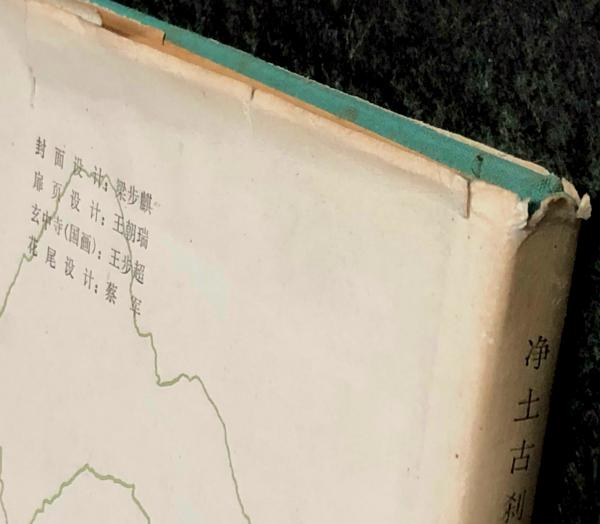 封面设计：梁步麒
扉页设计：王朝瑞
玄中寺(国画)：王步超
花尾设计：蔡军
净土古刹